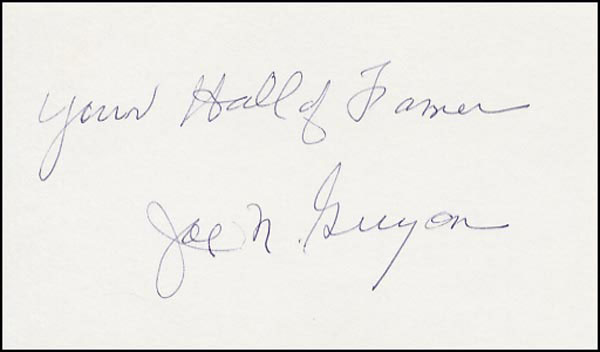 Your Hall of Famer
Joe N. Guyon